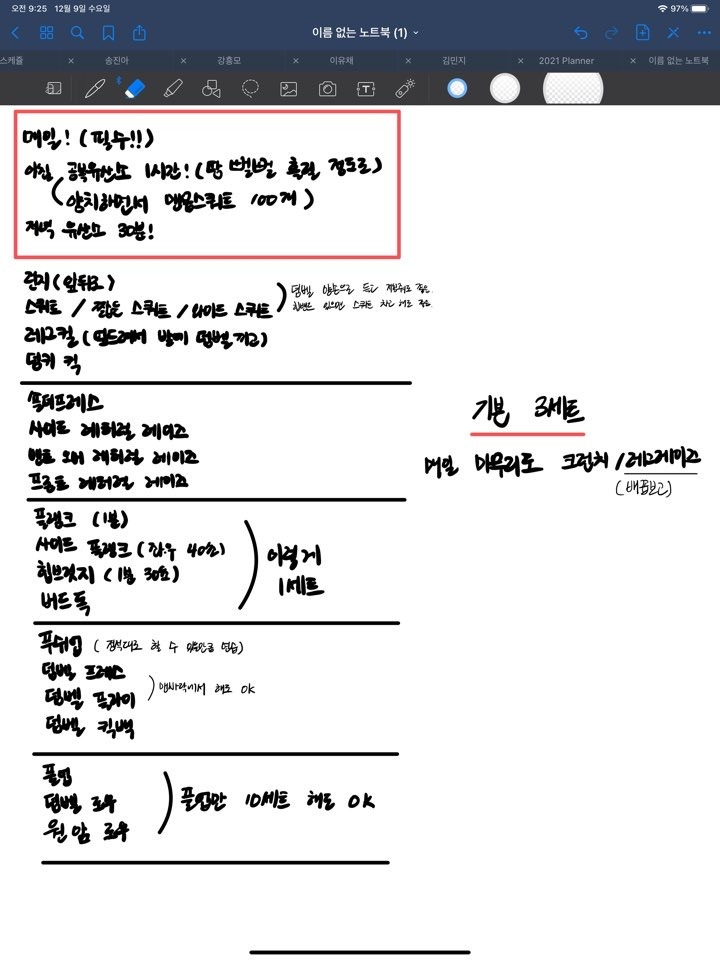 오전 9:25 12월 9일 수요일
97%
이름 없는 노트북 (1)
스케쥴
송진아
강흥모
이유채
김민지
2021 Planner
이름 없는 노트북
매일! (필수!!)
아침 공복유산소 1시간! (땀 뻘뻘 흘릴 정도로)
(양치하면서 맨몸스쿼트 100개)
저녁 유산소 30분!
런지 (앞뒤로)
스쿼트 / 짧은 스쿼트 / 와이드 스쿼트
덤벨 양손으로 들고
스쿼트 하고 해도 좋음
레그컬 (엎드려서 발에 덤벨끼고)
덩키 킥
숄더프레스
사이드 레터럴 레이즈
벤트 오버 레터럴 레이즈
프론트 레터럴 레이즈
기본 3세트
매일 마무리로 크런치 / 레그레이즈
(배꼽보고)
플랭크 (1분)
사이드 플랭크 (좌우 40초)
힙브릿지 (1분 30초)
버드 독
이렇게
1세트
푸쉬업 (정석대로 할 수 있을만큼 연습)
덤벨 프레스
덤벨 플라이
맨바닥에서 해도 OK
덤벨 킥백
풀업
덤벨 로우
원 암 로우
풀업만 10세트 해도 OK